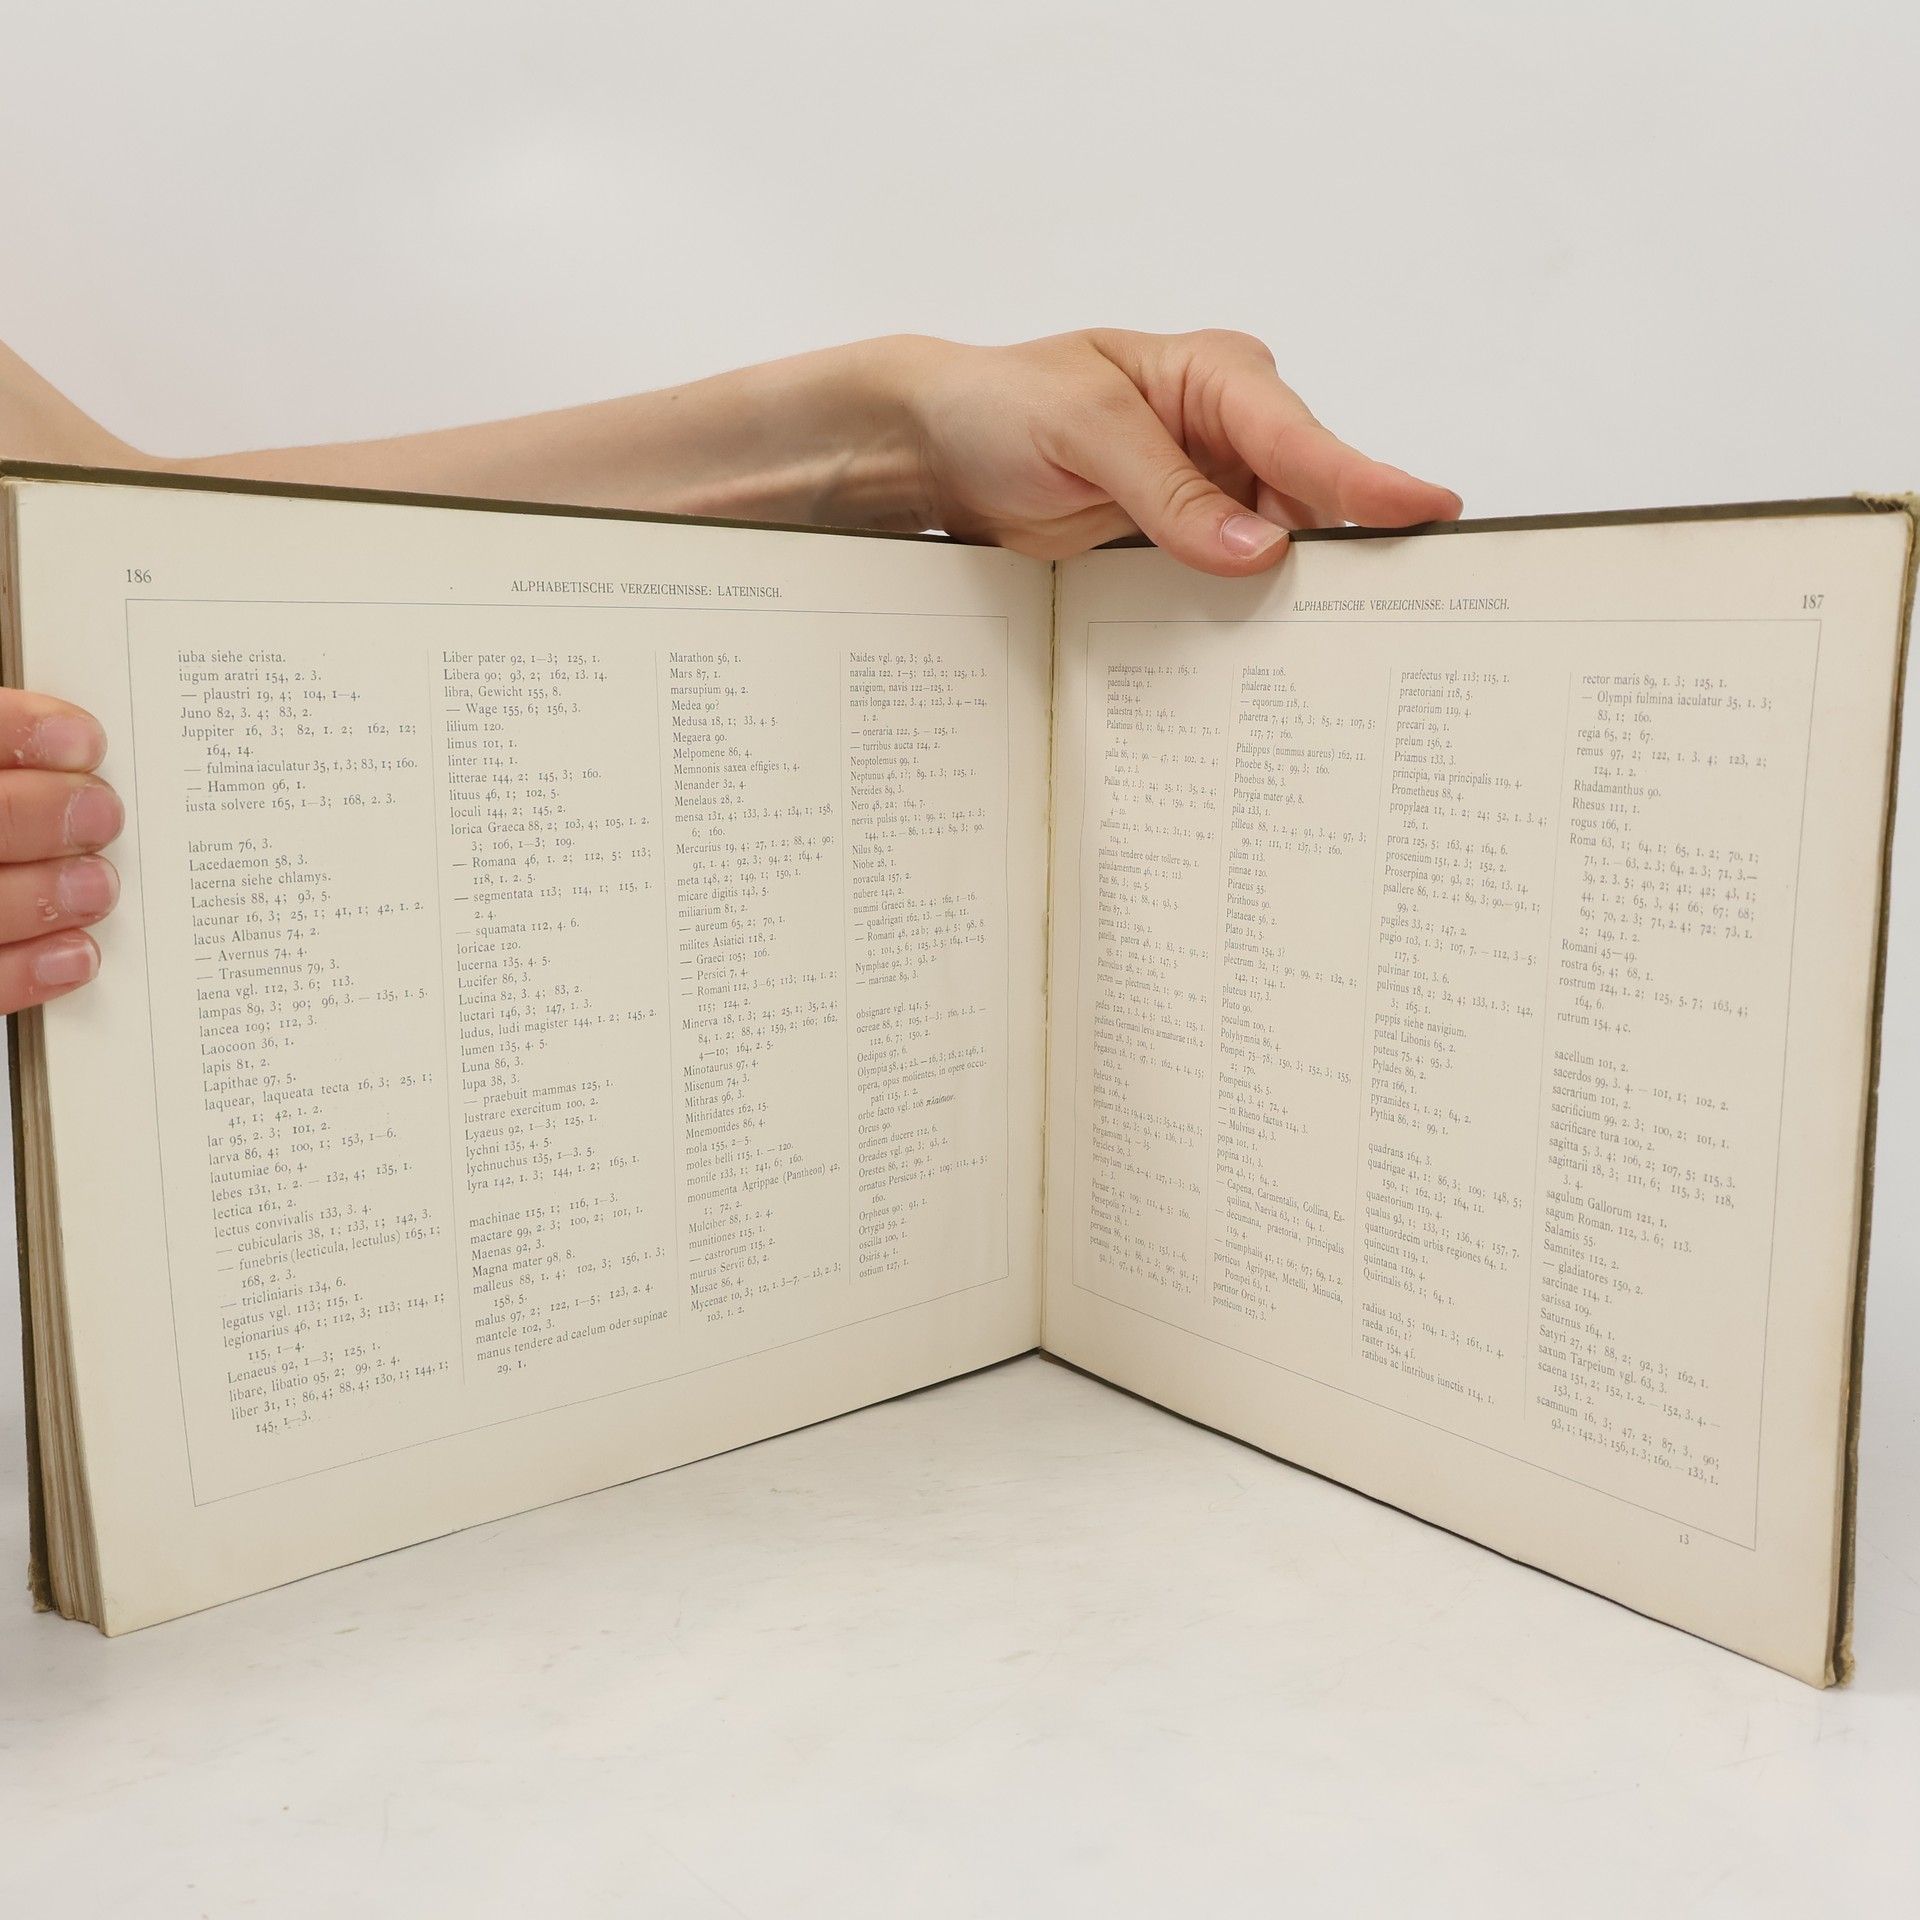 186
ALPHABETISCHE VERZEICHNISSE: LATEINISCH.
iuba siehe crista.
iugum aratri 154, 2. 3.
— plaustri 19, 4; 104, 1—4.
Juno 82, 3. 4; 83, 2.
Juppiter 16, 3; 82, 1. 2; 162, 12;
164, 14.
— fulmina iaculatur 35, 1, 3; 83, 1; 160.
— Hammon 96, 1.
iusta solvere 165, 1—3; 168, 2. 3.
labrum 76, 3.
Lacedaemon 58, 3.
lacerna siehe chlamys.
Lachesis 88, 4; 93, 5.
lacunar 16, 3; 25, 1; 41, 1; 42, 1. 2.
lacus Albanus 74, 2.
— Avernus 74, 4.
— Trasumennus 79, 3.
laena vgl. 112, 3. 6; 113.
lampas 89, 3; 90; 96, 3. — 135, 1. 5.
lancea 109; 112, 3.
Laocoon 36, 1.
lapis 81, 2.
Lapithae 97, 5.
laquear, laqueata tecta 16, 3; 25, 1;
41, 1; 42, 1. 2.
lar 95, 2. 3; 101, 2.
larva 86, 4; 100, 1; 153, 1—6.
lautumiae 60, 4.
lebes 131, 1. 2. — 132, 4; 135, 1.
lectica 161, 2.
lectus convivalis 133, 3. 4.
— cubicularis 38, 1; 133, 1; 142, 3.
— funebris (lecticula, lectulus) 165, 1;
168, 2. 3.
— tricliniaris 134, 6.
legatus vgl. 113; 115, 1.
legionarius 46, 1; 112, 3; 113; 114, 1;
115, 1—4.
Lenaeus 92, 1—3; 125, 1.
libare, libatio 95, 2; 99, 2. 4.
liber 31, 1; 86, 4; 88, 4; 130, 1; 144, 1;
145, 1—3.
Liber pater 92, 1—3; 125, 1.
Libera 90; 93, 2; 162, 13. 14.
libra, Gewicht 155, 8.
— Wage 155, 6; 156, 3.
lilium 120.
limus 101, 1.
linter 114, 1.
litterae 144, 2; 145, 3; 160.
lituus 46, 1; 102, 5.
loculi 144, 2; 145, 2.
lorica Graeca 88, 2; 103, 4; 105, 1. 2.
3; 106, 1—3; 109.
— Romana 46, 1. 2; 112, 5; 113;
118, 1. 2. 5.
— segmentata 113; 114, 1; 115, 1.
2. 4.
— squamata 112, 4. 6.
loricae 120.
lucerna 135, 4. 5.
Lucifer 86, 3.
Lucina 82, 3. 4; 83, 2.
luctari 146, 3; 147, 1. 3.
ludus, ludi magister 144, 1. 2; 145, 2.
lumen 135, 4. 5.
Luna 86, 3.
lupa 38, 3.
— praebuit mammas 125, 1.
lustrare exercitum 100, 2.
Lyaeus 92, 1—3; 125, 1.
lychni 135, 4. 5.
lychnuchus 135, 1—3. 5.
lyra 142, 1. 3; 144, 1. 2; 165, 1.
machinae 115, 1; 116, 1—3.
mactare 99, 2. 3; 100, 2; 101, 1.
Maenas 92, 3.
Magna mater 98, 8.
malleus 88, 1. 4; 102, 3; 156, 1. 3;
158, 5.
malus 97, 2; 122, 1—5; 123, 2. 4.
mantele 102, 3.
manus tendere ad caelum oder supinae
29, 1.
Marathon 56, 1.
Mars 87, 1.
marsupium 94, 2.
Medea 90?
Medusa 18, 1; 33, 4. 5.
Megaera 90.
Melpomene 86, 4.
Memnonis saxea effigies 1, 4.
Menander 32, 4.
Menelaus 28, 2.
mensa 131, 4; 133, 3. 4; 134, 1; 158,
6; 160.
Mercurius 19, 4; 27, 1. 2; 88, 4; 90;
91, 1. 4; 92, 3; 94, 2; 164, 4.
meta 148, 2; 149, 1; 150, 1.
micare digitis 143, 5.
miliarium 81, 2.
— aureum 65, 2; 70, 1.
milites Asiatici 118, 2.
— Graeci 105; 106.
— Persici 7, 4.
— Romani 112, 3—6; 113; 114, 1. 2;
115; 124, 2.
Minerva 18, 1. 3; 24; 25, 1; 35, 2, 4;
84, 1. 2; 88, 4; 159, 2; 160; 162,
4—10; 164, 2. 5.
Minotaurus 97, 4.
Misenum 74, 3.
Mithras 96, 3.
Mithridates 162, 15.
Mnemonides 86, 4.
mola 155, 2—5.
moles belli 115, 1. — 120.
monile 133, 1; 141, 6; 160.
monumenta Agrippae (Pantheon) 42,
1; 72, 2.
Mulciber 88, 1. 2. 4.
munitiones 115, 1.
— castrorum 115, 2.
murus Servii 63, 2.
Musae 86, 4.
Mycenae 10, 3; 12, 1. 3—7. — 13, 2. 3;
103, 1. 2.
Naides vgl. 92, 3; 93, 2.
navalia 122, 1—5; 123, 2; 125, 1. 3.
navigium, navis 122—125, 1.
navis longa 122, 3. 4; 123, 3. 4. — 124,
1. 2.
— oneraria 122, 5. — 125, 1.
— turribus aucta 124, 2.
Neoptolemus 99, 1.
Neptunus 46, 1?; 89, 1. 3; 125, 1.
Nereides 89, 3.
Nero 48, 2a; 164, 7.
nervis pulsis 91, 1; 99, 2; 142, 1. 3;
144, 1. 2. — 86, 1. 2. 4; 89, 3; 90.
Nilus 89, 2.
Niobe 28, 1.
novacula 157, 2.
nubere 142, 2.
nummi Graeci 82, 2. 4; 162, 1—16.
— quadrigati 162, 13. — 164, 11.
— Romani 48, 2a b; 49, 4. 5; 98, 8.
9; 101, 5. 6; 125, 3. 5; 164, 1—15.
Nymphae 92, 3; 93, 2.
— marinae 89, 3.
obsignare vgl. 141, 5.
ocreae 88, 2; 105, 1—3; 160, 1. 3. —
112, 6. 7; 150, 2.
Oedipus 97, 6.
Olympia 58, 4; 23. — 16, 3; 18, 2; 146, 1.
opera, opus molientes, in opere occu-
pati 115, 1. 2.
orbe facto vgl. 108
Orcus 90.
ordinem ducere 112, 6.
Oreades vgl. 92, 3; 93, 2.
Orestes 86, 2; 99, 1.
ornatus Persicus 7, 4; 109; 111, 4. 5;
160.
Orpheus 90; 91, 1.
Ortygia 59, 2.
oscilla 100, 1.
Osiris 4, 1.
ostium 127, 1.
ALPHABETISCHE VERZEICHNISSE: LATEINISCH.
187
paedagogus 144, 1. 2; 165, 1.
paenula 140, 1.
pala 154, 4.
palaestra 78, 1; 146, 1.
Palatinus 63, 1; 64, 1; 70, 1; 71, 1.
2. 4.
palmas tendere oder tollere 29, 1.
paludamentum 46, 1. 2; 113.
Pan 86, 3; 92, 5.
Parcae 19, 4; 88, 4; 93, 5.
Paris 87, 3.
Patroclus 28, 2; 106, 2.
pedites Germani levis armaturae 118, 2.
pedum 28, 3; 100, 1.
Peleus 19, 4.
pelta 106, 4.
Pergamum 34 — 35.
Pericles 30, 3.
Persepolis 7, 1. 2.
Perseus 18, 1.
phalanx 108.
phalerae 112, 6.
— equorum 118, 1.
pharetra 7, 4; 18, 3; 85, 2; 107, 5;
117, 7; 160.
Philippus (nummus aureus) 162, 11.
Phoebe 85, 2; 99, 3; 160.
Phoebus 86, 3.
Phrygia mater 98, 8.
pila 133, 1.
pilleus 88, 1. 2. 4; 91, 3. 4; 97, 3;
99, 1; 111, 1; 137, 3; 160.
pilum 113.
pinnae 120.
Piraeus 55.
Pirithous 90.
Plataeae 56, 2.
Plato 31, 5.
plaustrum 154, 3?
plectrum 32, 1; 90; 99, 2; 132, 2;
142, 1; 144, 1.
pluteus 117, 3.
Pluto 90.
poculum 100, 1.
Polyhymnia 86, 4.
Pompei 75—78; 150, 3; 152, 3; 155,
2; 170.
Pompeius 45, 5.
pons 43, 3. 4; 72, 4.
— in Rheno factus 114, 3.
— Mulvius 43, 3.
popa 101, 1.
popina 131, 3.
porta 43, 1; 64, 2.
— Capena, Carmentalis, Collina, Es-
quilina, Naevia 63, 1; 64, 1.
— decumana, praetoria, principalis
119, 4.
— triumphalis 41, 1; 66; 67; 69, 1. 2.
porticus Agrippae, Metelli, Minucia,
Pompei 63, 1.
portitor Orci 91, 4.
posticum 127, 3.
praefectus vgl. 113; 115, 1.
praetoriani 118, 5.
praetorium 119, 4.
precari 29, 1.
prelum 156, 2.
Priamus 133, 3.
principia, via principalis 119, 4.
Prometheus 88, 4.
propylaea 11, 1. 2; 24; 52, 1. 3. 4;
126, 1.
prora 125, 5; 163, 4; 164, 6.
proscenium 151, 2. 3; 152, 2.
Proserpina 90; 93, 2; 162, 13. 14.
psallere 86, 1. 2. 4; 89, 3; 90.—91, 1;
99, 2.
pugiles 33, 2; 147, 2.
pugio 103, 1. 3; 107, 7. — 112, 3—5;
117, 5.
pulvinar 101, 3. 6.
pulvinus 18, 2; 32, 4; 133, 1. 3; 142,
3; 165, 1.
puppis siehe navigium.
puteal Libonis 65, 2.
puteus 75, 4; 95, 3.
Pylades 86, 2.
pyra 166, 1.
pyramides 1, 1. 2; 64, 2.
Pythia 86, 2; 99, 1.
quadrans 164, 3.
quadrigae 41, 1; 86, 3; 109; 148, 5;
150, 1; 162, 13; 164, 11.
quaestorium 119, 4.
qualus 93, 1; 133, 1; 136, 4; 157, 7.
quattuordecim urbis regiones 64, 1.
quincunx 119, 1.
quintana 119, 4.
Quirinalis 63, 1; 64, 1.
radius 103, 5; 104, 1. 3; 161, 1. 4.
raeda 161, 1?
raster 154, 4 f.
ratibus ac lintribus iunctis 114, 1.
rector maris 89, 1. 3; 125, 1.
— Olympi fulmina iaculatur 35, 1. 3;
83, 1; 160.
regia 65, 2; 67.
remus 97, 2; 122, 1. 3. 4; 123, 2;
124, 1. 2.
Rhadamanthus 90.
Rhesus 111, 1.
rogus 166, 1.
Roma 63, 1; 64, 1; 65, 1. 2; 70, 1;
71, 1. — 63, 2. 3; 64, 2. 3; 71, 3.—
39, 2. 3. 5; 40, 2; 41; 42; 43, 1;
44, 1. 2; 65, 3. 4; 66; 67; 68;
69; 70, 2. 3; 71, 2. 4; 72; 73, 1.
2; 149, 1. 2.
Romani 45—49.
rostra 65, 4; 68, 1.
rostrum 124, 1. 2; 125, 5. 7; 163, 4;
164, 6.
rutrum 154, 4 c.
sacellum 101, 2.
sacerdos 99, 3. 4. — 101, 1; 102, 2.
sacrarium 101, 2.
sacrificium 99, 2. 3; 100, 2; 101, 1.
sacrificare tura 100, 2.
sagitta 5, 3. 4; 106, 2; 107, 5; 115, 3.
sagittarii 18, 3; 111, 6; 115, 3; 118,
3. 4.
sagulum Gallorum 121, 1.
sagum Roman. 112, 3. 6; 113.
Salamis 55.
Samnites 112, 2.
— gladiatores 150, 2.
sarcinae 114, 1.
sarissa 109.
Saturnus 164, 1.
Satyri 27, 4; 88, 2; 92, 3; 162, 1.
saxum Tarpeium vgl. 63, 3.
scaena 151, 2; 152, 1. 2. — 152, 3. 4. —
153, 1. 2.
scamnum 16, 3; 47, 2; 87, 3. 90;
93, 1; 142, 3; 156, 1. 3; 160. — 133, 1.
13